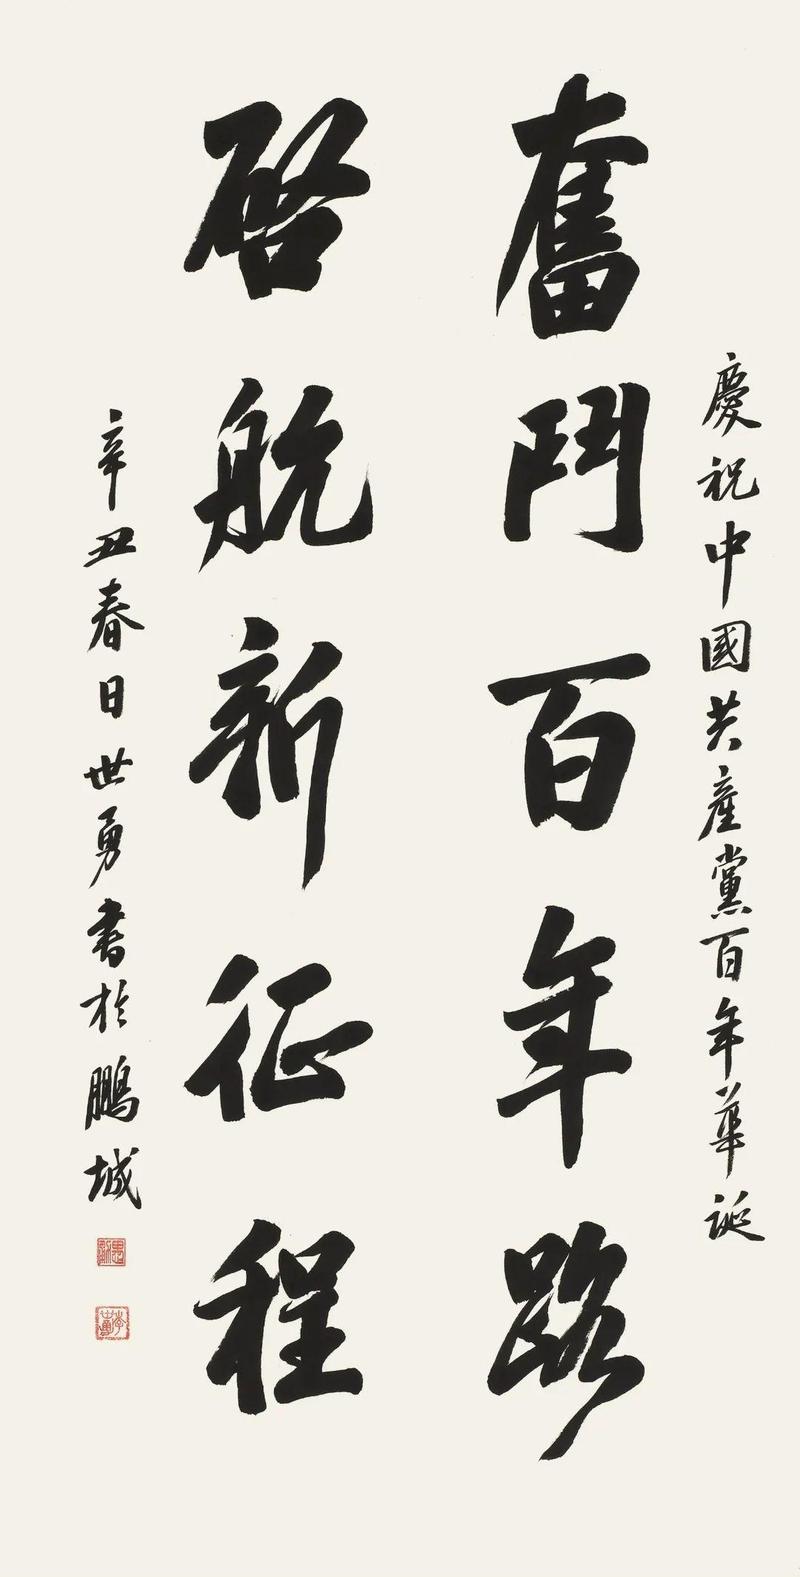 慶祝中國共產黨百年華誕
奮鬥百年路
啓航新征程
辛丑春日世勇書於鵬城